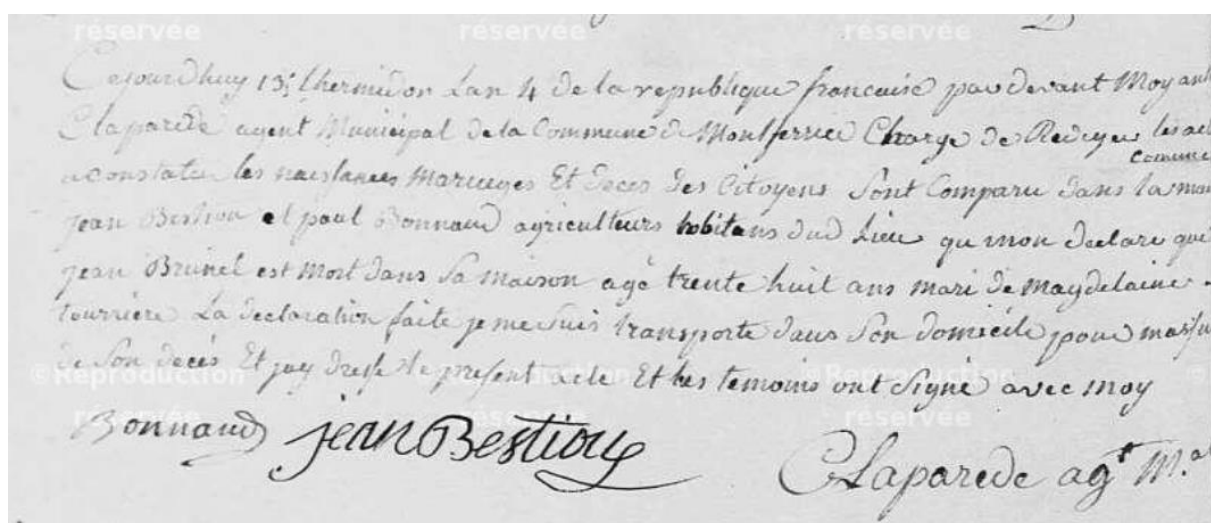 réservée réservée réservée
Cejourdhuy 13e thermidor Lan 4 de la republique francaise pardevant Moy
Claparede agent Municipal de la Commune de Montferrier Charge de Rediger les
a constater les naissances Mariages Et deces des Citoyens Sont Comparu dans la
commune
jean Bestion et paul Bonnaud agriculteurs habitans dud Lieu qu mon declare que
jean Brunel est Mort dans Sa maison agé trente huit ans mari de Magdelaine
tourriere La declaration faite je me suis transporté dans Son domicile pour
de Son decés Et jay dressé le present acte Et les temoins ont Signé avec moy
©Reproduction Reproduction Reproduction
Bonnaud jean Bestion
réservée réservée
Claparede agt M.al